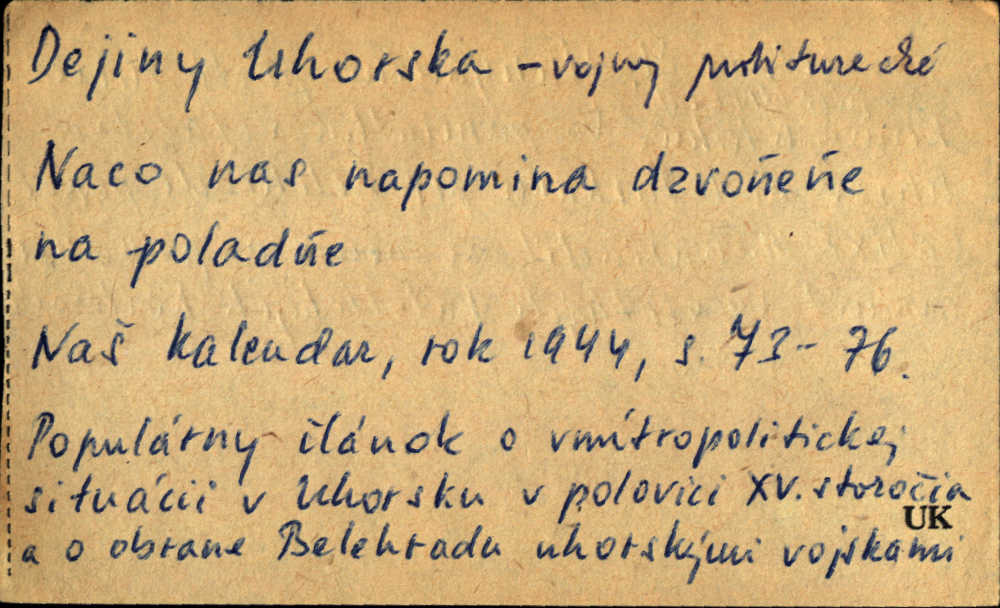 Dejiny Uhorska - vojny protiturecké
Naco nas napomina dzvoňeňe
na poladňe
Naš kalendar, rok 1944, s. 73-76.
Populárny článok o vnútropolitickej
situácii v Uhorsku v polovici XV. storočia
UK
a o obrane Belehradu uhorskými vojskami